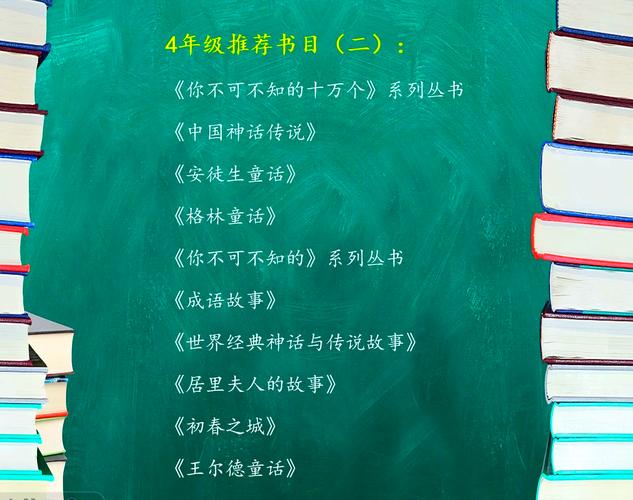 4年级推荐书目（二）：
《你不可不知的十万个》系列丛书
《中国神话传说》
《安徒生童话》
《格林童话》
《你不可不知的》系列丛书
《成语故事》
《世界经典神话与传说故事》
《居里夫人的故事》
《初春之城》
《王尔德童话》